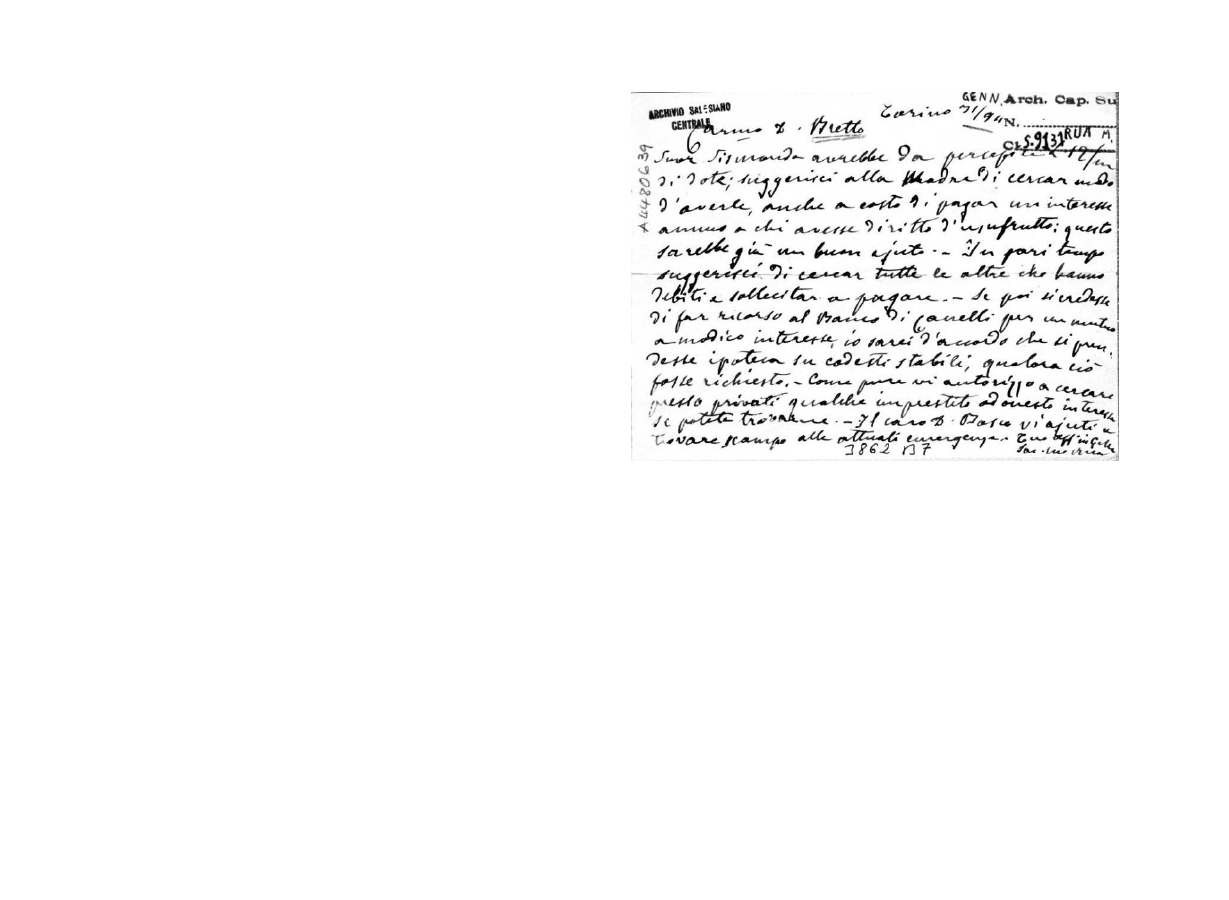 GENN. Arch. Cap. Su
ARCHIVIO SALESIANO
CENTRALE
Torino 31/94 N.
Carmo D. Bretto
S.9131 RUA M.
A4480639
Suor Sismonda avrebbe da percepire 12/m
di dote; suggerisci alla Madre di cercar modo
d'averle, anche a costo di pagar un interesse
annuo a chi avesse diritto d'usufrutto: questo
sarebbe già un buon ajuto. - In pari tempo
suggerisci di cercar tutte le altre che hanno
debiti e sollecitar a pagare. - Se poi si credesse
di far ricorso al Banco di Canelli per un mutuo
a modico interesse, io sarei d'accordo che si pren-
desse ipoteca su codesti stabili, qualora ciò
fosse richiesto. - Come pure vi autorizzo a cercare
presso privati qualche imprestito ad onesto interesse
se potete trovarne. - Il caro D. Bosco vi ajuti a
trovare scampo alle attuali emergenze. Tuo aff in G.
Sac.
3862 B7